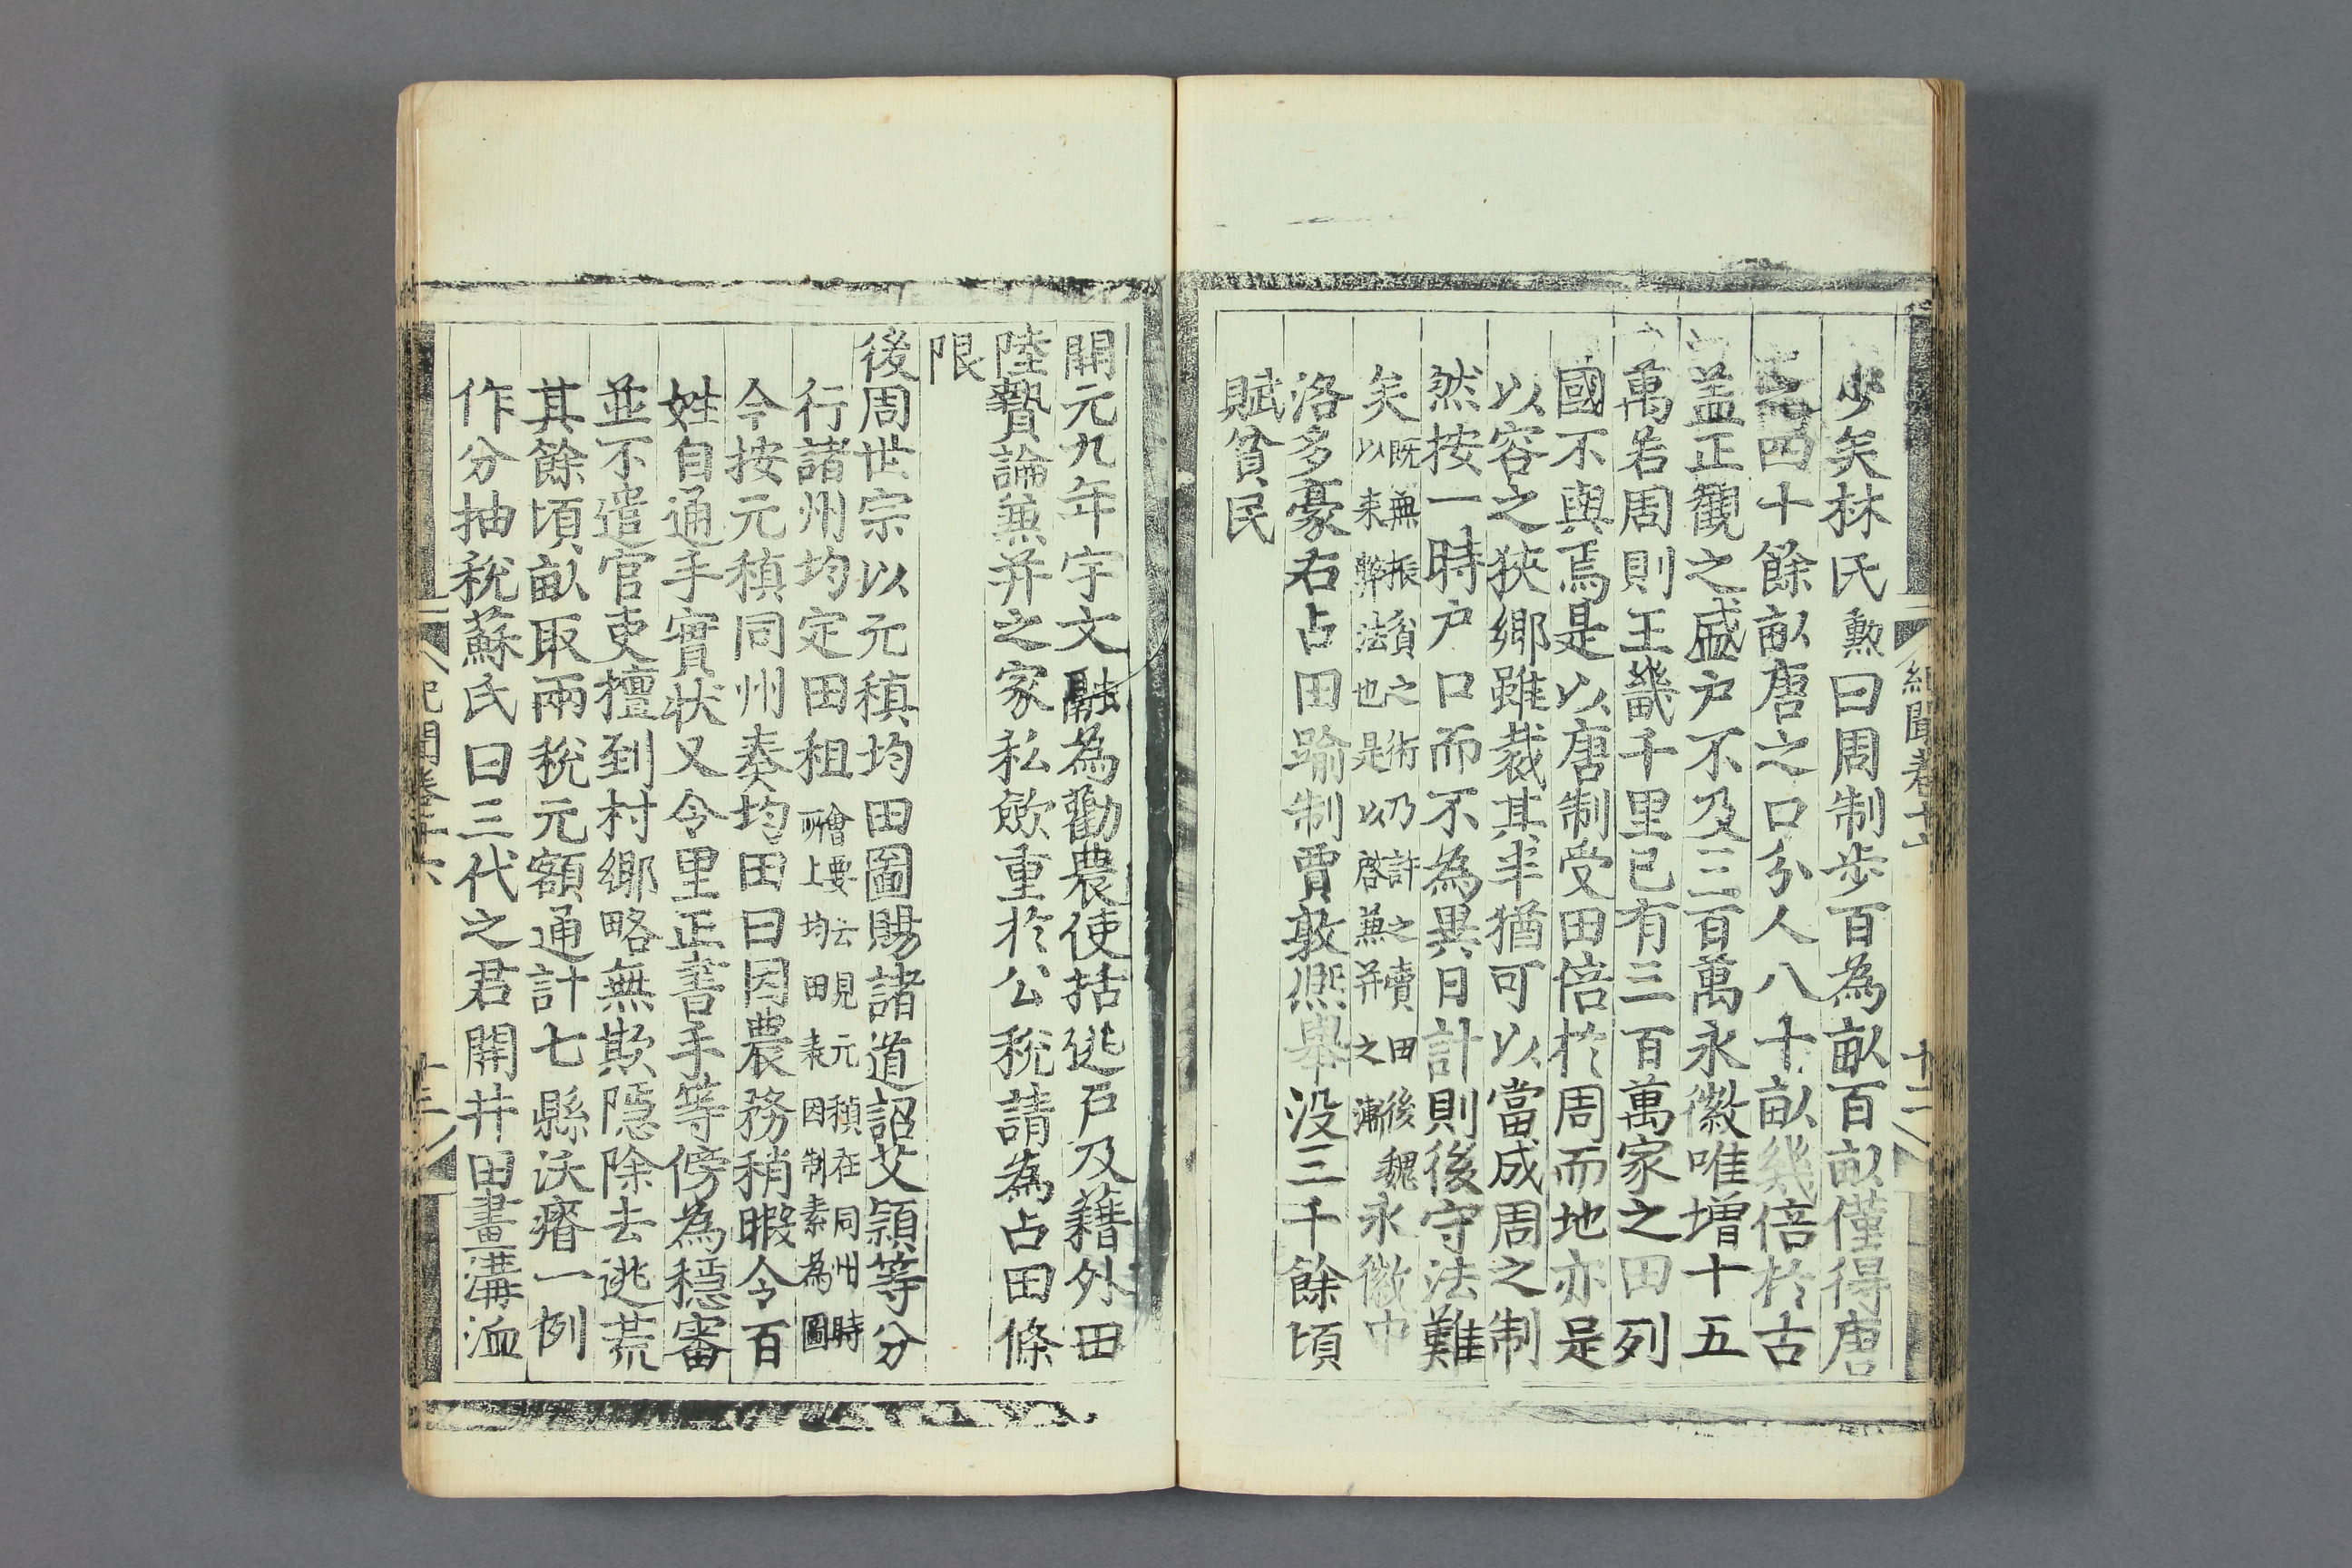 少矣林氏勲曰周制歩百為畝百畝僅得唐
之四十餘畝唐之口分人八十畝幾倍於古
盖正觀之盛户不及三百萬永徽唯增十五
萬若周則王畿千里已有三百萬家之田列
國不與焉是以唐制受田倍於周而地亦是
以容之狹鄉雖裁其半猶可以當成周之制
然按一時户口而不為異日計則後守法難
矣既無振貧之術乃許之賣田後魏以来弊法也是以啓兼并之漸永徽中
洛多豪右占田踰制賈敦熈舉没三千餘頃
賦貧民
紀聞卷十六
十二
開元九年宇文融為勸農使括逃户及籍外田
陸贄論兼并之家私斂重於公税請為占田條
限
後周世宗以元稹均田圖賜諸道詔艾頴等分
行諸州均定田租會要云見元稹在同州時所上均田表因制素為圖
今按元稹同州奏均田曰因農務稍暇令百
姓自通手實状又令里正書手等傍為穩審
並不遣官吏擅到村鄉略無欺隱除去逃荒
其餘頃畝取兩税元額通計七縣沃瘠一例
作分抽税蘇氏曰三代之君開井田畫溝洫
紀聞卷十六
十三